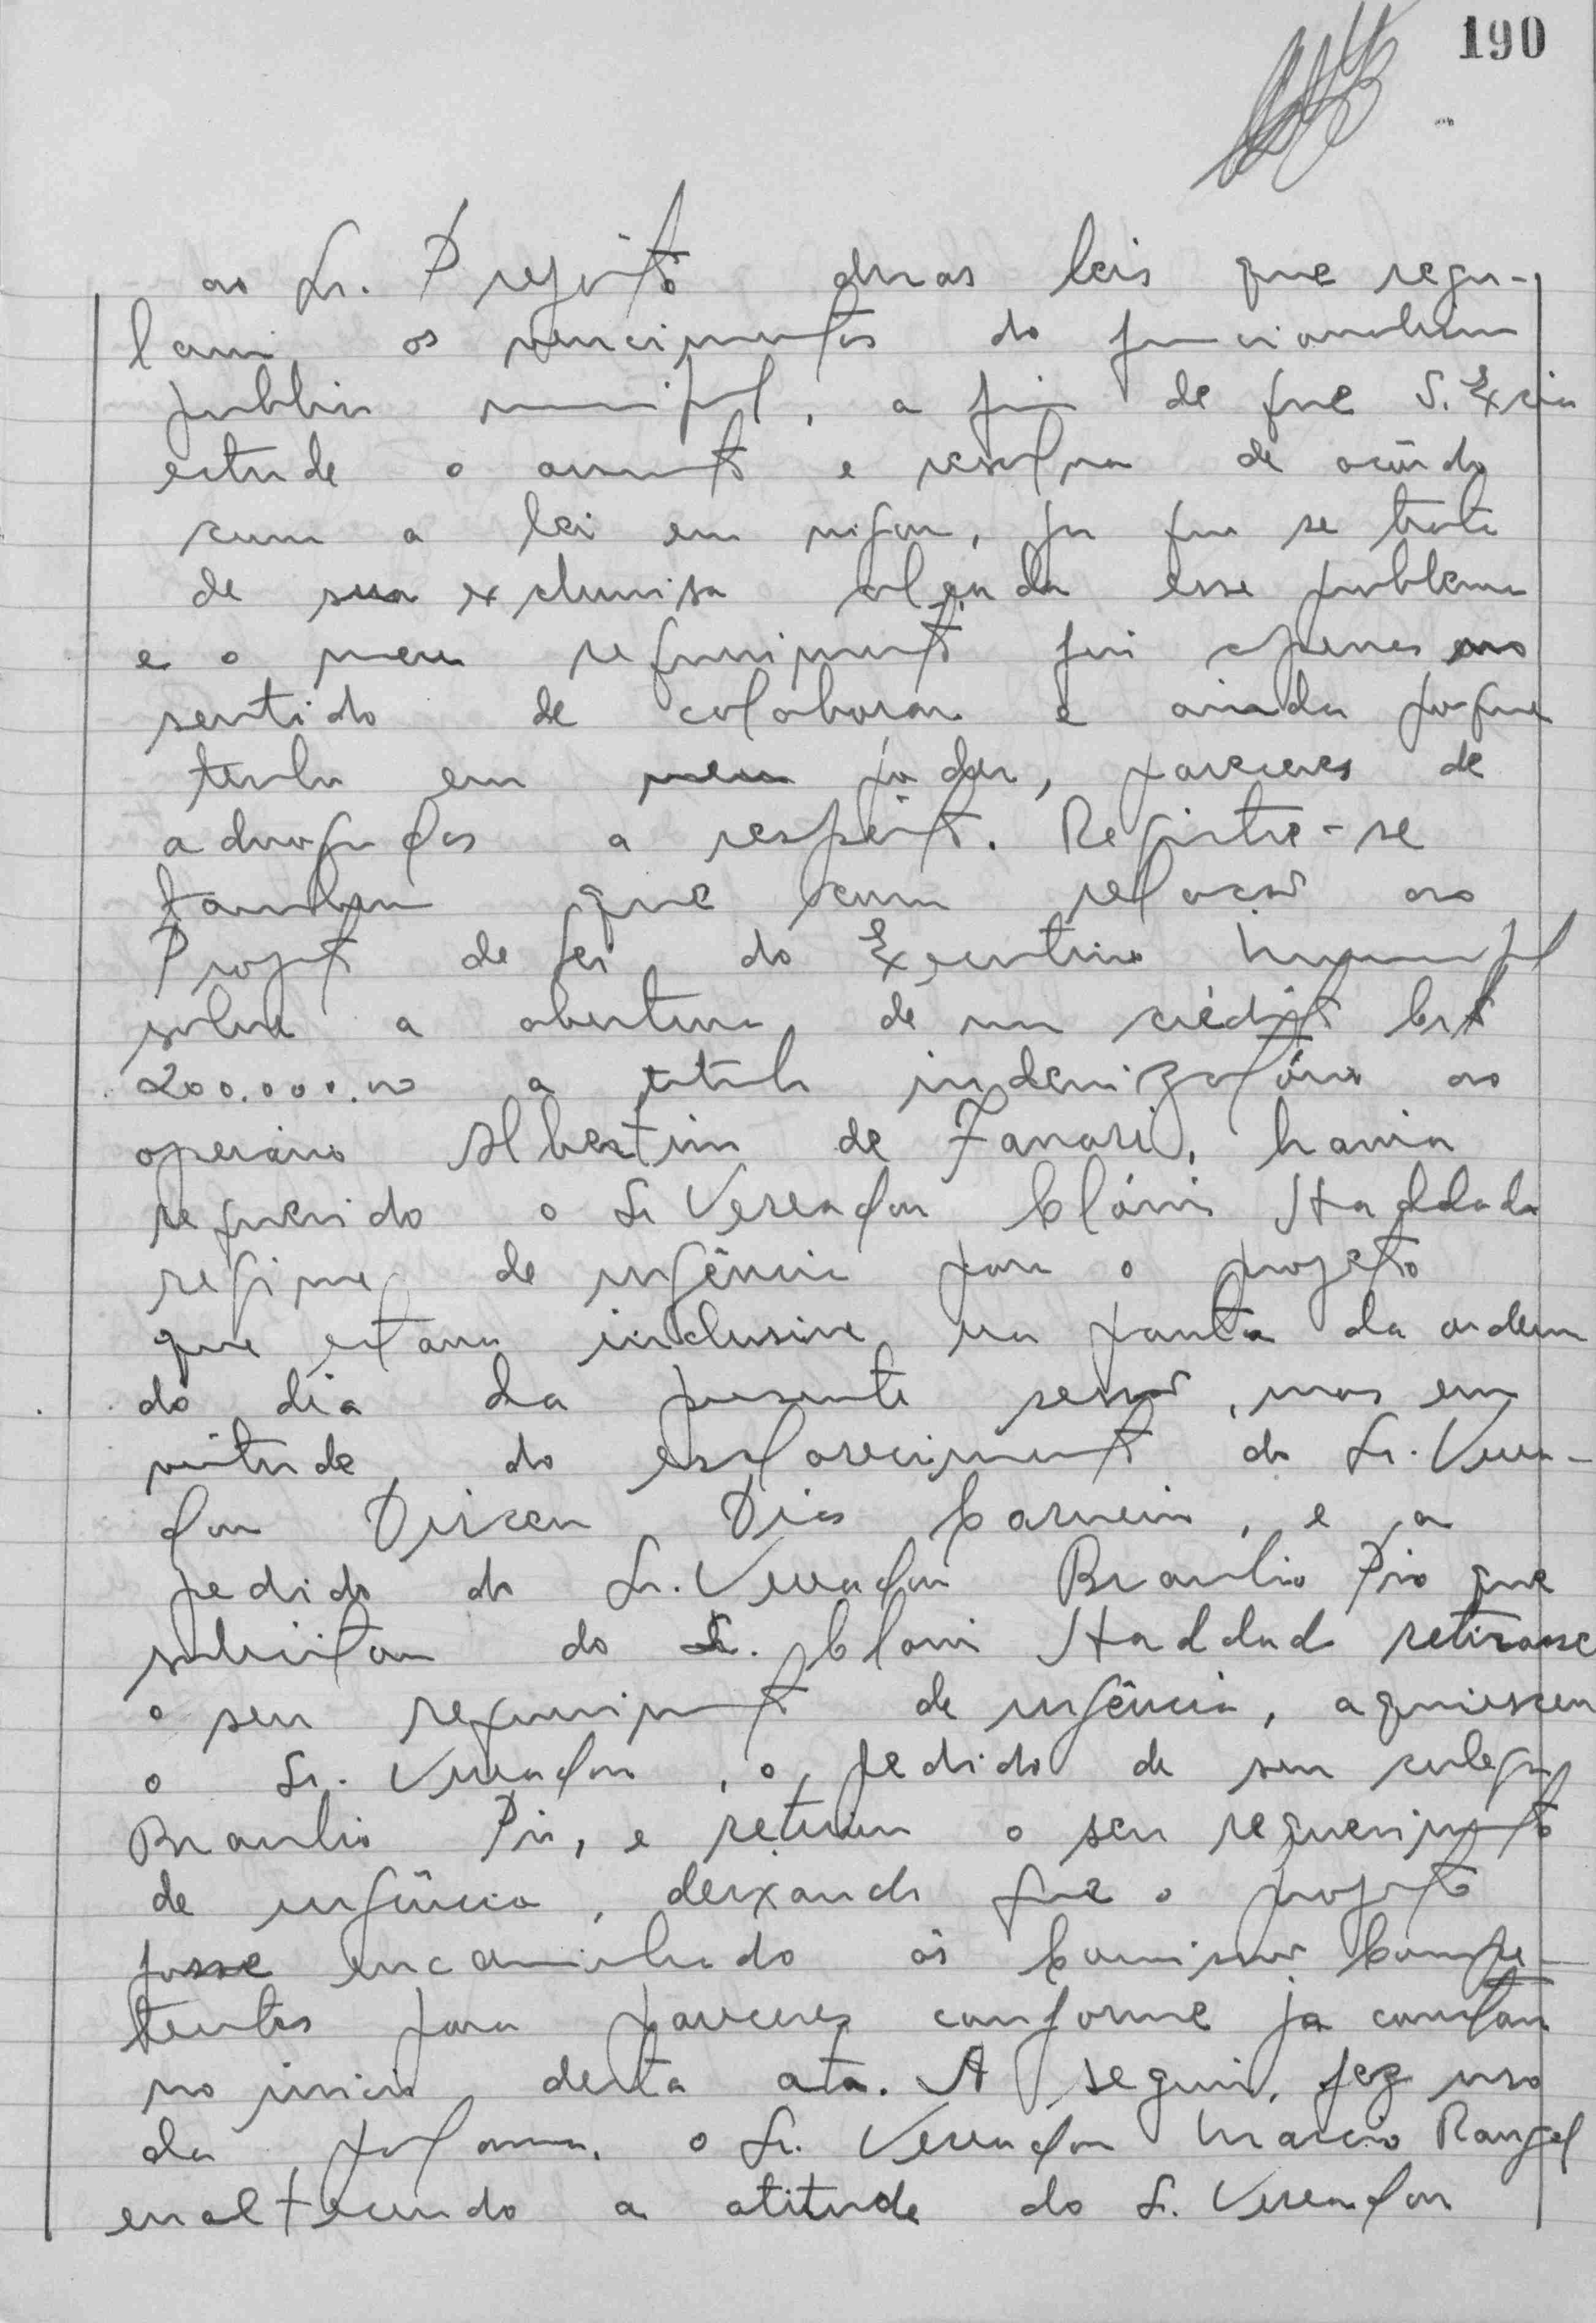 190
ao Sr. Prefeito duas leis que regu-
lam os vencimentos do funcionalismo
publico municipal, a fim de que S. Excia
estude o assunto e resolva de acôrdo
com a lei em vigor, ja que se trata
de sua exclusiva alçada esse problema
e o meu requerimento foi apenas no
sentido de colaborar e ainda porque
tenho em meu poder, pareceres de
advogados a respeito. Registre-se
tambem que com relação ao
Projeto de Lei do Executivo Municipal
sobre a abertura de um crédito Cr$
200.000.00 a titulo indenizatório ao
operário Albertim de Tamari, havia
requerido o Sr Vereador Clóvis Haddad o
regime de urgência para o projeto
que estava inclusive na pauta da ordem
do dia da presente sessão, mas em
virtude do esclarecimento do Sr. Verea-
dor Dirceu Dias Carneiro, e a
pedido do Sr. Vereador Braulio Pio que
solicitou do Sr. Clovis Haddad retirasse
o seu requerimento de urgência, aquiesceu
o Sr. Vereador, o pedido de seu colega
Braulio Pio, e retirou o seu requerimento
de urgência, deixando que o projeto
fosse encaminhado ás Comissões Compe-
tentes para pareceres conforme ja constou
no inicio desta ata. A seguir, fez uso
da palavra, o Sr. Vereador Marcio Rangel
enaltecendo a atitude do Sr. Vereador